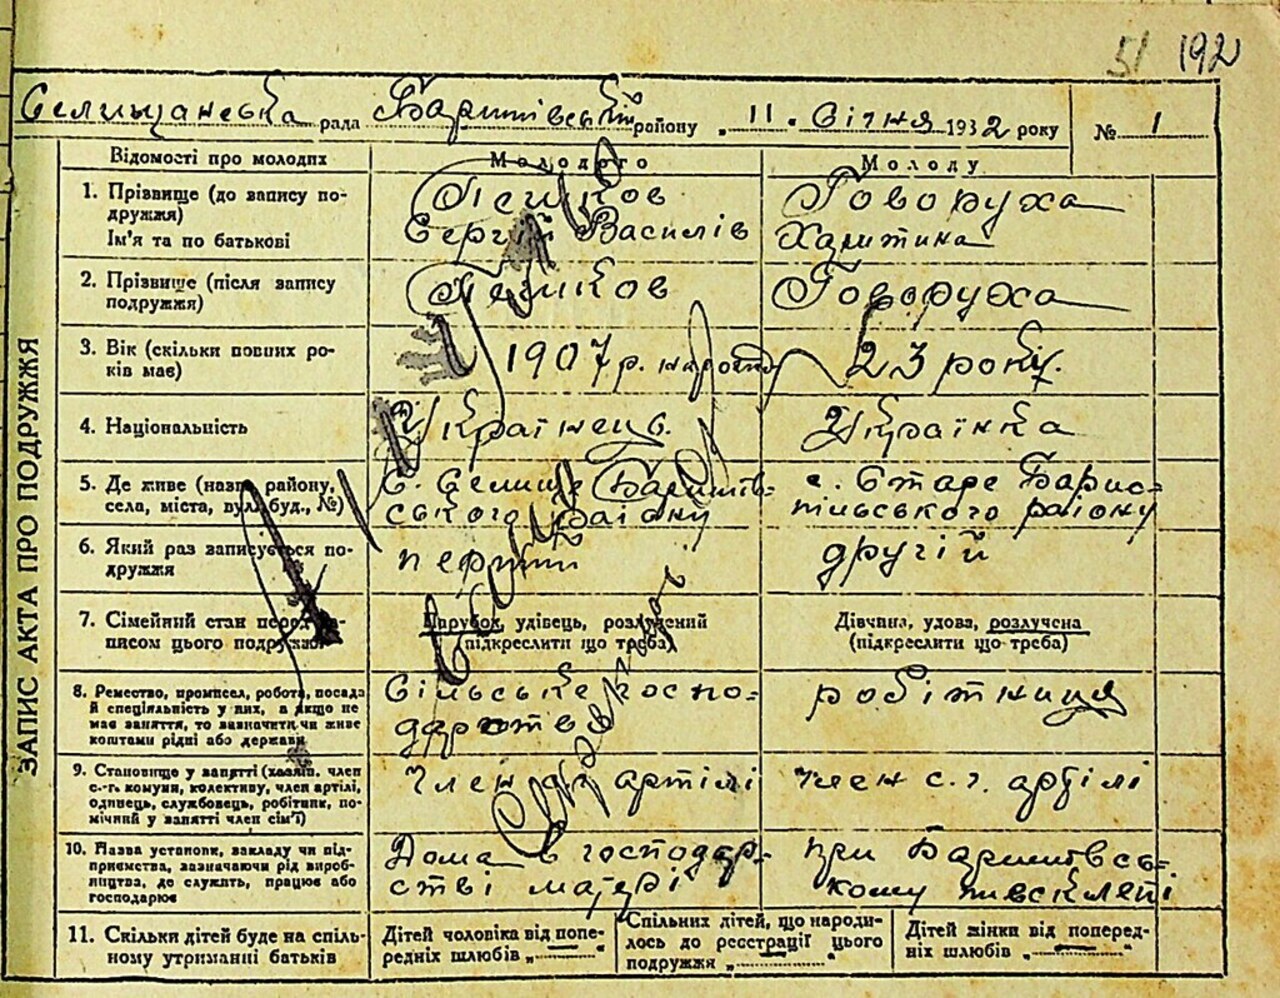 51 192
Селищанська рада Баришівський району „11" Січня 1932 року № 1
ЗАПИС АКТА ПРО ПОДРУЖЖЯ
Відомості про молодих Молодого Молоду
1. Прізвище (до запису по-
дружжя)
Ім'я та по батькові
Пешков
Сергій Василів
Говоруха
Харитина
2. Прізвище (після запису
подружжя)
Пешков
Говоруха
3. Вік (скільки повних ро-
ків має)
1907 р. народ
23 років.
4. Національність
Українець.
Українка
5. Де живе (назва району,
села, міста, вул., буд., №)
с. Селище Баришів-
ського району
с. Старе Барис-
пільського району
6. Який раз записується по-
дружжя
перший
другій
7. Сімейний стан перед за-
писом цього подружжя
Парубок, удівець, розлучений
(підкреслити що треба)
Дівчина, удова, розлучена
(підкреслити що треба)
8. Ремество, промисел, робота, посада
й спеціяльність у них, а якщо не
має заняття, то зазначити чи живе
коштами рідні або держави
Сільське госпо-
дарство
робітниця
9. Становище у занятті (хазяїн, член
с.-г. комуни, колективу, член артілі,
одинець, службовець, робітник, по-
мічний у занятті член сім'ї)
Член артілі
член с. г. артілі
10. Назва установи, закладу чи під-
приємства, зазначаючи рід вироб-
ництва, де служить, працює або
господарює
Дома в господар-
стві матері
при Баришівсь-
кому
11. Скільки дітей буде на спіль-
ному утриманні батьків
Дітей чоловіка від попе-
редніх шлюбів „ — "
Спільних дітей, що народи-
лось до реєстрації цього
подружжя „ — "
Дітей жінки від поперед-
ніх шлюбів „ — "